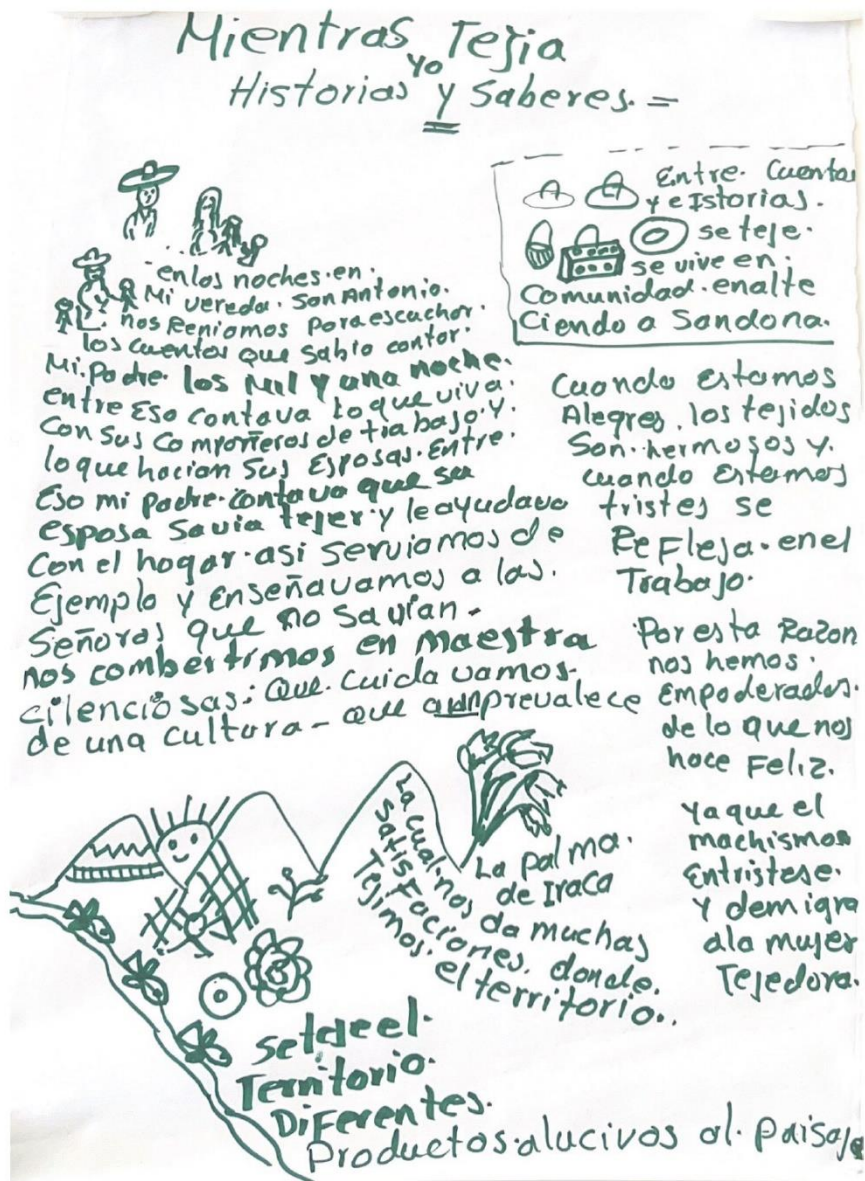 Mientras yo Tejia
Historias y Saberes. =
Entre. Cuentos
y e Istorias.
se teje.
se vive en.
Comunidad. enalte
Ciendo a Sandona.
en los noches. en.
Mi vereda. San Antonio.
nos Reniamos para escuchar.
los cuentos que sabia contar.
Mi. Padre. los Mil y una noche.
entre Eso contava lo que viva.
Con sus Compañeros de trabajo. y.
lo que hacian sus Esposas. Entre.
Eso mi padre. contava que su
esposa Savia tejer. y le ayudava
Con el hogar. asi serviamos de
Ejemplo y Enseñavamos a las.
Señoras que no Savian.
nos combertimos en maestra
cilenciosas: Que. Cuida vamos.
de una cultura - que aun prevalece
Cuando Estamos
Alegres. los tejidos
Son. hermosos y.
cuando Estamos
tristes se
ReFleja. en el
Trabajo.
Por esta Razon
nos hemos.
Empoderados.
de lo que nos
hace Feliz.
Ya que el
machismos
Entristese.
Y demigra
ala mujer
Tejedora.
La palma.
de Iraca
La cual. nos da muchas
satisfaciones. donde.
Tejimos. el territorio..
se teje el.
Territorio.
DiFerentes.
Productos. alucivos al. paisaje